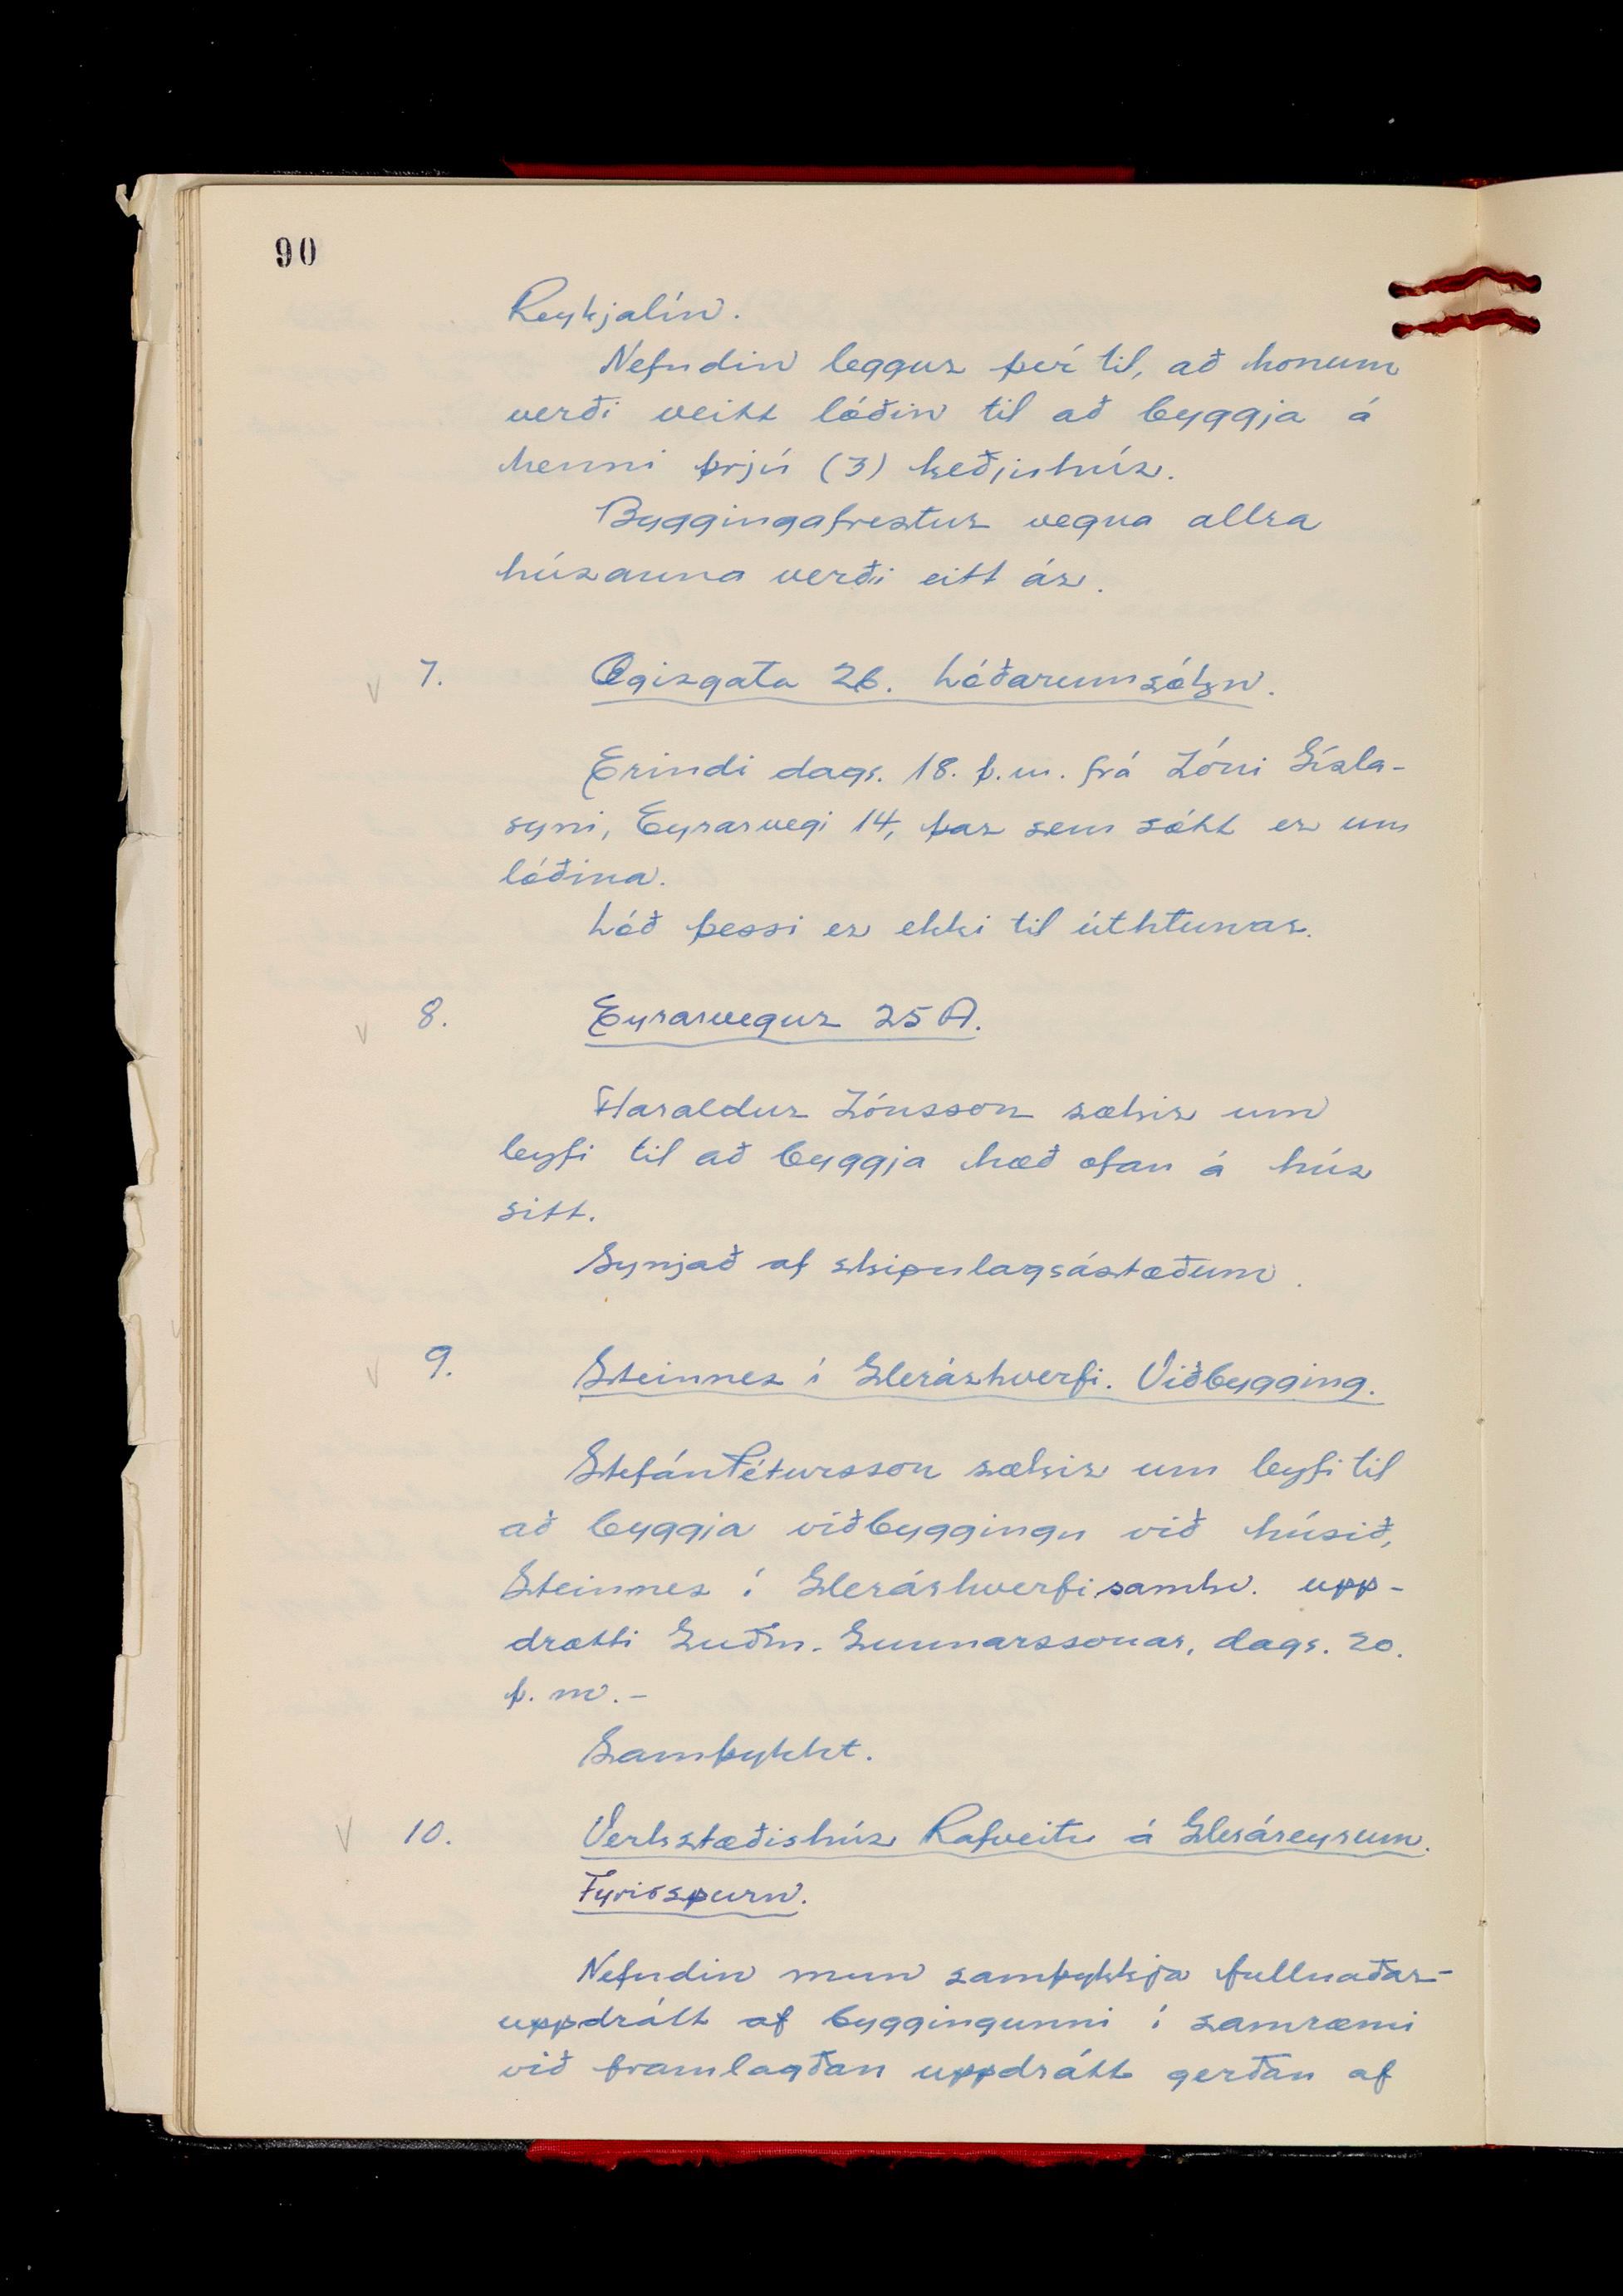 90
Reykjalín.
Nefndin leggur því til, að honum
verði veitt lóðin til að byggja á
henni þrjú (3) keðjuhús.
Byggingafrestur vegna allra
húsanna verði eitt ár.
7. Ægisgata 26. Lóðarumsókn.
Erindi dags. 18. þ.m. frá Jóni Gísla-
syni, Eyrarvegi 14, þar sem sótt er um
lóðina.
Lóð þessi er ekki til úthlutunar.
8. Eyrarvegur 25 A.
Haraldur Jónsson sækir um
leyfi til að byggja hæð ofan á hús
sitt.
Synjað af skipulagsástæðum.
9. Steinnes í Glerárhverfi. Viðbygging.
Stefán Pétursson sækir um leyfi til
að byggja viðbyggingu við húsið,
Steinnes í Glerárhverfi samkv. upp-
drætti Guðm. Gunnarssonar, dags. 20.
þ. m. -
Samþykkt.
10. Verkstæðishús Rafveitu á Gleráreyrum.
Fyrirspurn.
Nefndin mun samþykkja fullnaðar-
uppdrátt af byggingunni í samræmi
við framlagðan uppdrátt gerðan af